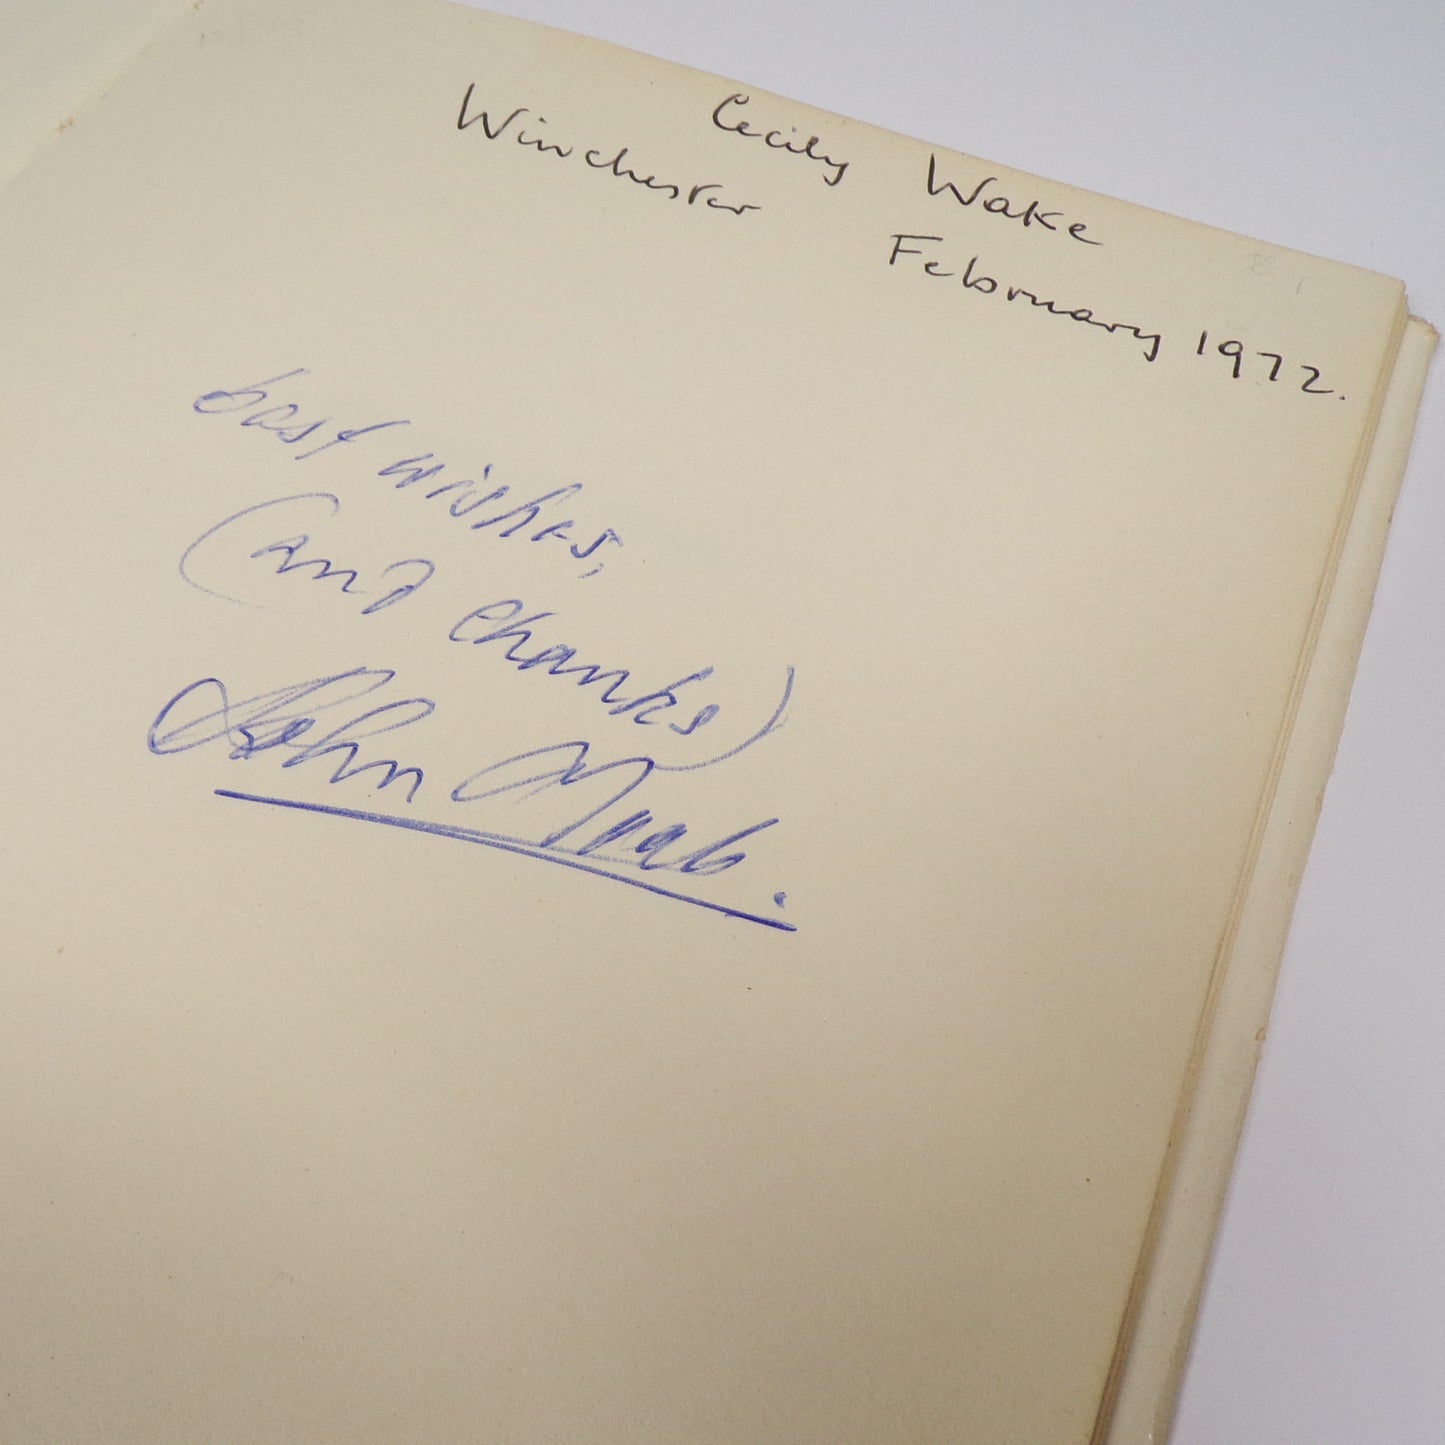 Cecily Wake
Winchester February 1972.
best wishes,
(and thanks)
John